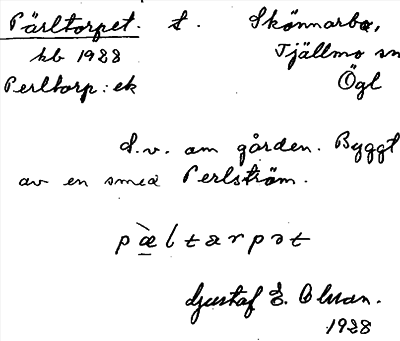 Pärltorpet. t. Skönnarbo,
kb 1928 Tjällmo sn
Perltorp: ek Ögl
S.v. om gården. Byggt
av en smed Perlström.
pæ̀ltɑrpət
Gustaf E. Olsson.
1928